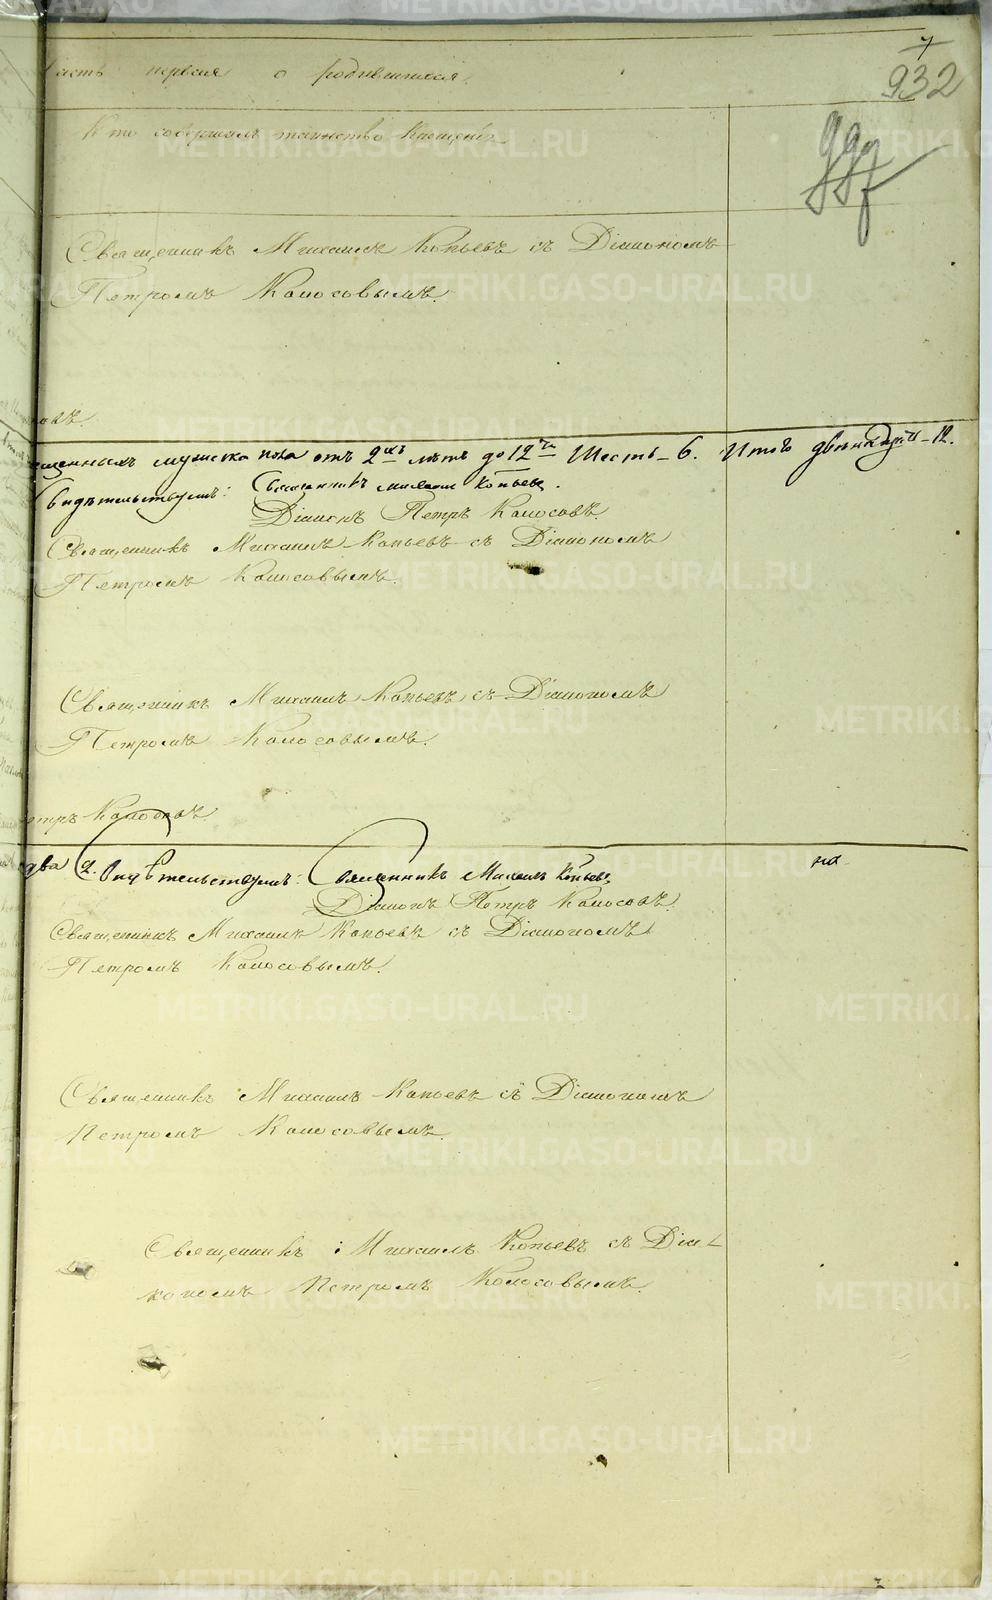 7
932
часть первая о родившихся.
997
Кто совершалъ таинство Крещенія
Священникъ Михаилъ Копьевъ съ Діакономъ
Петромъ Колосовымъ.
мужеска пола отъ 2хъ лѣтъ до 12ти Шесть - 6. Итого двенадцать - 12.
Свидѣтельствуемъ: Священникъ Михаилъ Копьевъ.
Діаконъ Петръ Колосовъ.
Священникъ Михаилъ Копьевъ съ Діакономъ
Петромъ Колосовымъ.
Священникъ Михаилъ Копьевъ съ Діакономъ
Петромъ Колосовымъ.
етръ Колосовъ.
два 2. Свидѣтельствуемъ: Священникъ Михаилъ Копьевъ на
Діаконъ Петръ Колосовъ.
Священникъ Михаилъ Копьевъ съ Діакономъ
Петромъ Колосовымъ.
Священникъ Михаилъ Копьевъ съ Діакономъ
Петромъ Колосовымъ.
Священникъ Михаилъ Копьевъ съ Діа-
кономъ Петромъ Колосовымъ.